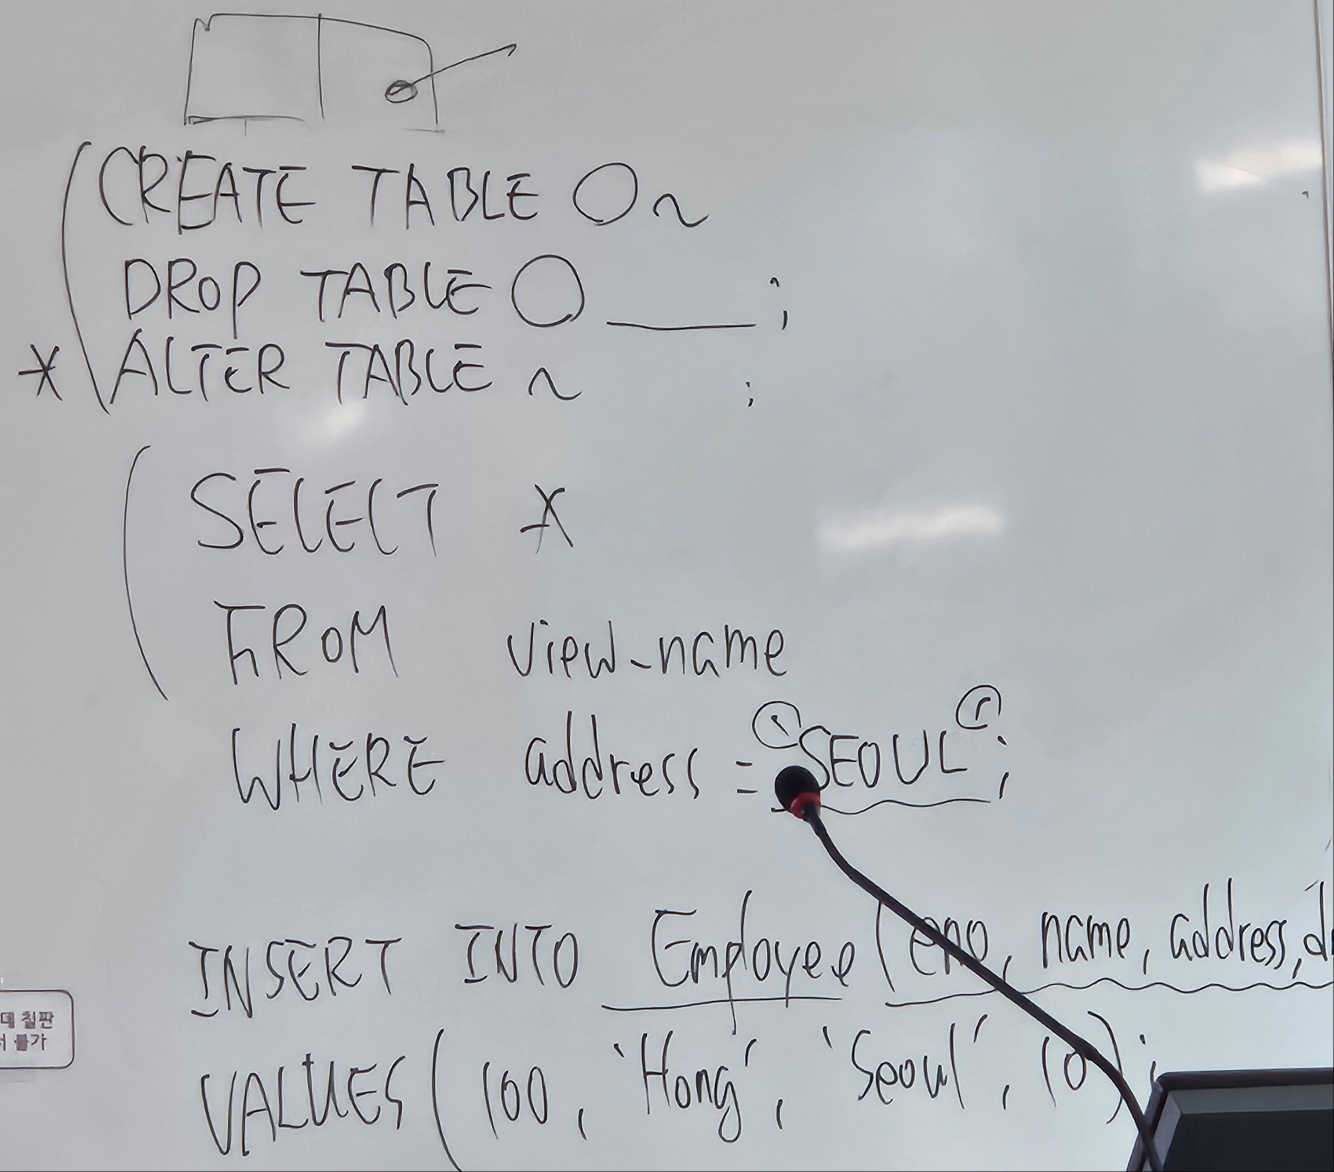 CREATE TABLE ○ ~
DROP TABLE ○ ____ ;
* ALTER TABLE ~ ;
SELECT *
FROM view_name
WHERE address = 'SEOUL';
INSERT INTO Employee (eno, name, address,
VALUES (100, 'Hong', 'Seoul', 10);
칠판
불가